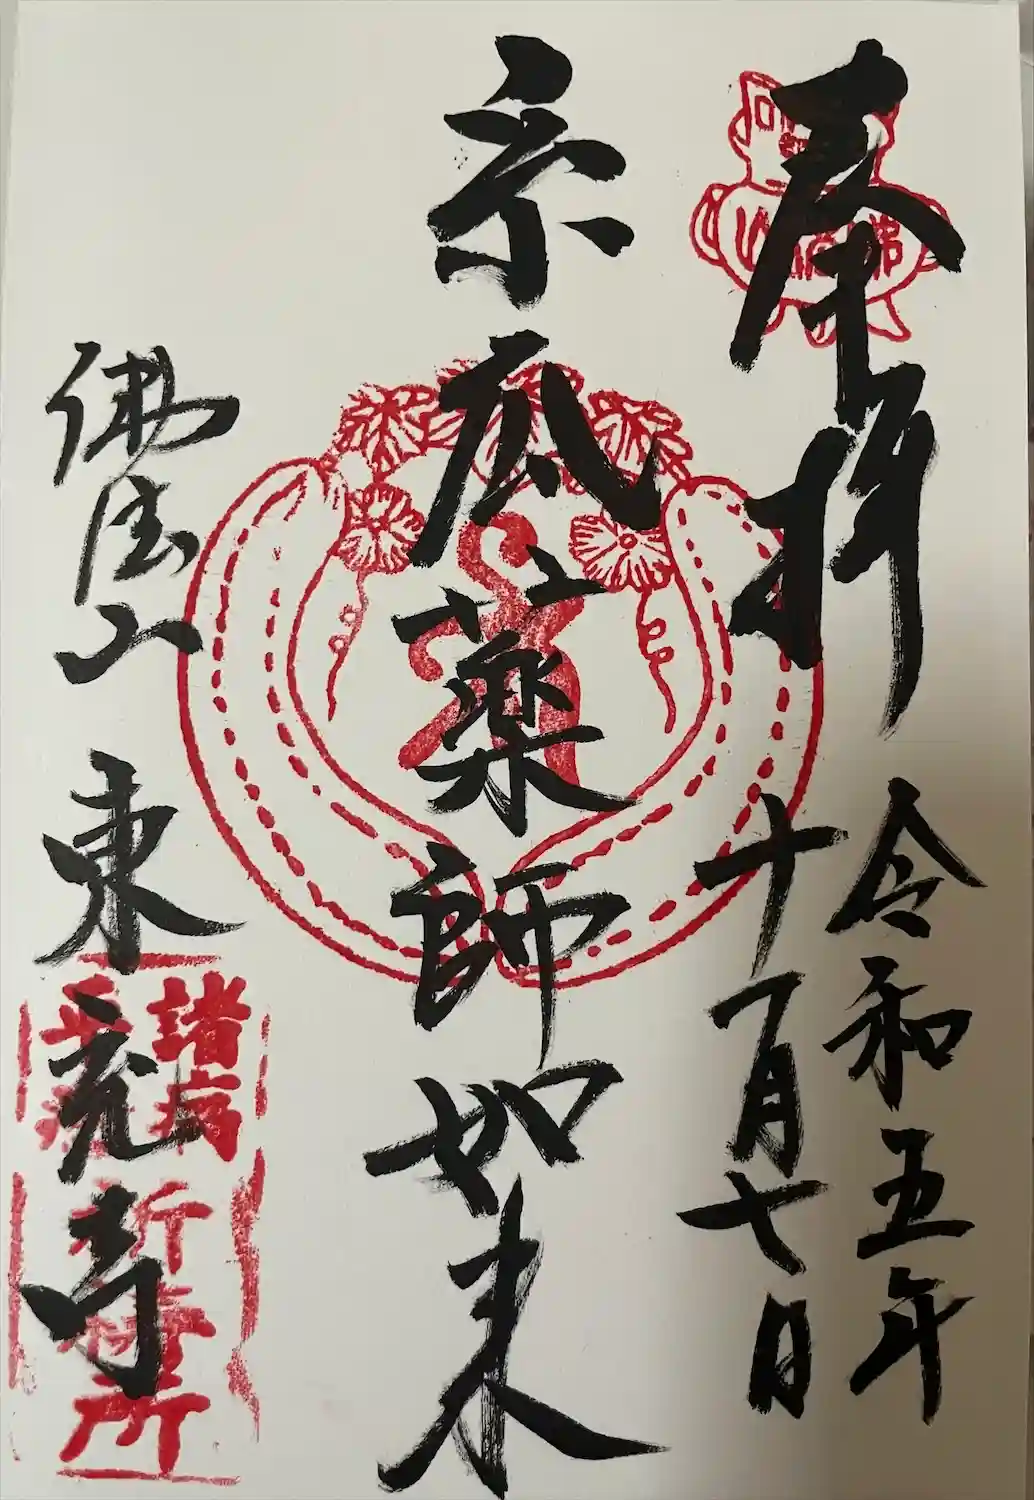 奉拝
令和五年
十月七日
京瓜薬師如来
佛法山 東充寺
諸病
所